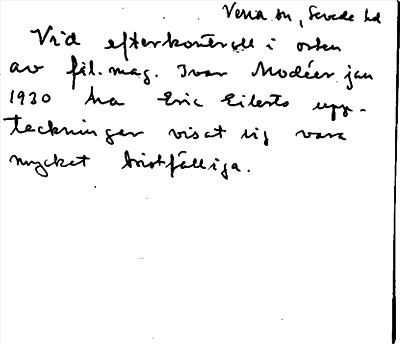 Vena sn, Sevede hd
Vid efterkontroll i orten
av fil. mag. Ivar Modéer jan
1930 ha Eric Eilerts upp-
teckningar visat sig vara
mycket bristfälliga.